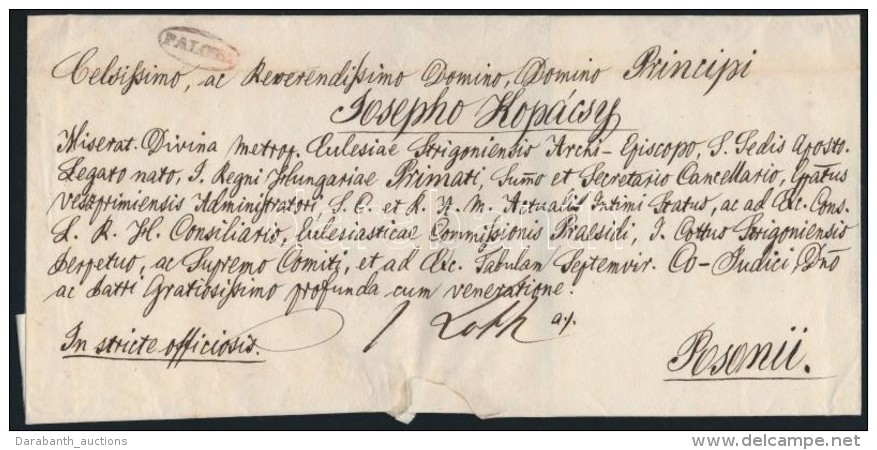 PALOTA
Celsissimo, ac Reverendissimo Domino, Domino Principi
Josepho Kopácsy
Miserat. Divina Metrop. Eclesiae Strigoniensis Archi-Episcopo, S. Sedis Aposto.
Legato nato, I. Regni Hungariae Primati, Sumo et Secretario Cancellario, Eppatus
Veszprimiensis Administratori S. C. et R. A. M. Actualis Intimi Status, ac ad Exc. Cons.
L. R. H. Consiliario, Eclesiasticae Commissionis Praesidi, I. Cottus Strigoniensis
perpetuo, ac Supremo Comiti, et ad Exc. Tabulam Septemvir. Co-Judici, Dno
ac Patri Gratiosissimo profunda cum veneratione.
1 Loth a/.
In stricte officiosis.
Posonii.
darabanth
Darabanth_auctions
www.delcampe.net